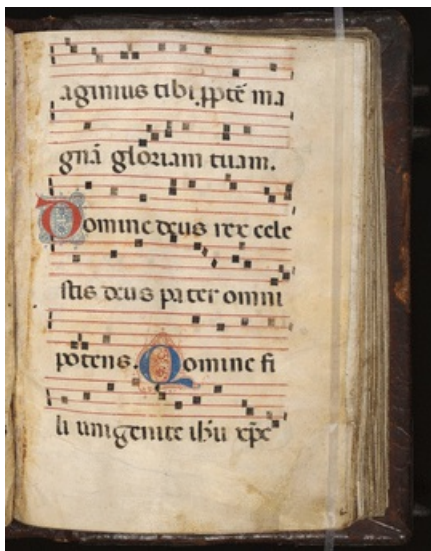 agimus tibi. ꝓpt̄ē ma
gnā gloriam tuam.
Domine deus rex cele
stis deus pater omni
potens. Domine fi
li unigenite ih̄u xp̄e